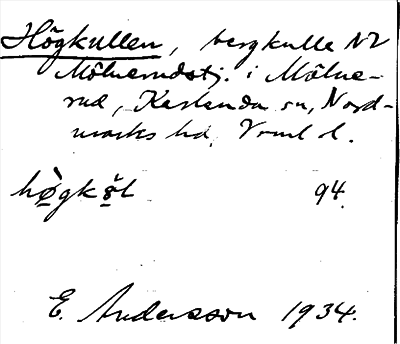 Högkullen, bergkulle NV
Mölnerudstj. i Mölne-
rud, Karlanda sn, Nord-
marks hd, Vrml l.
94.
E. Andersson 1934.